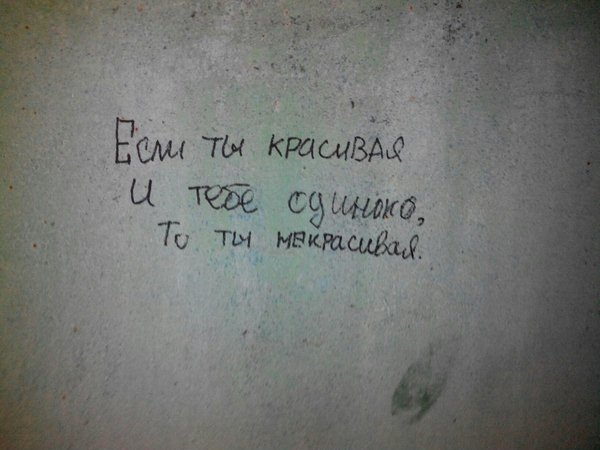 Если ты красивая
и тебе одиноко,
То ты некрасивая.